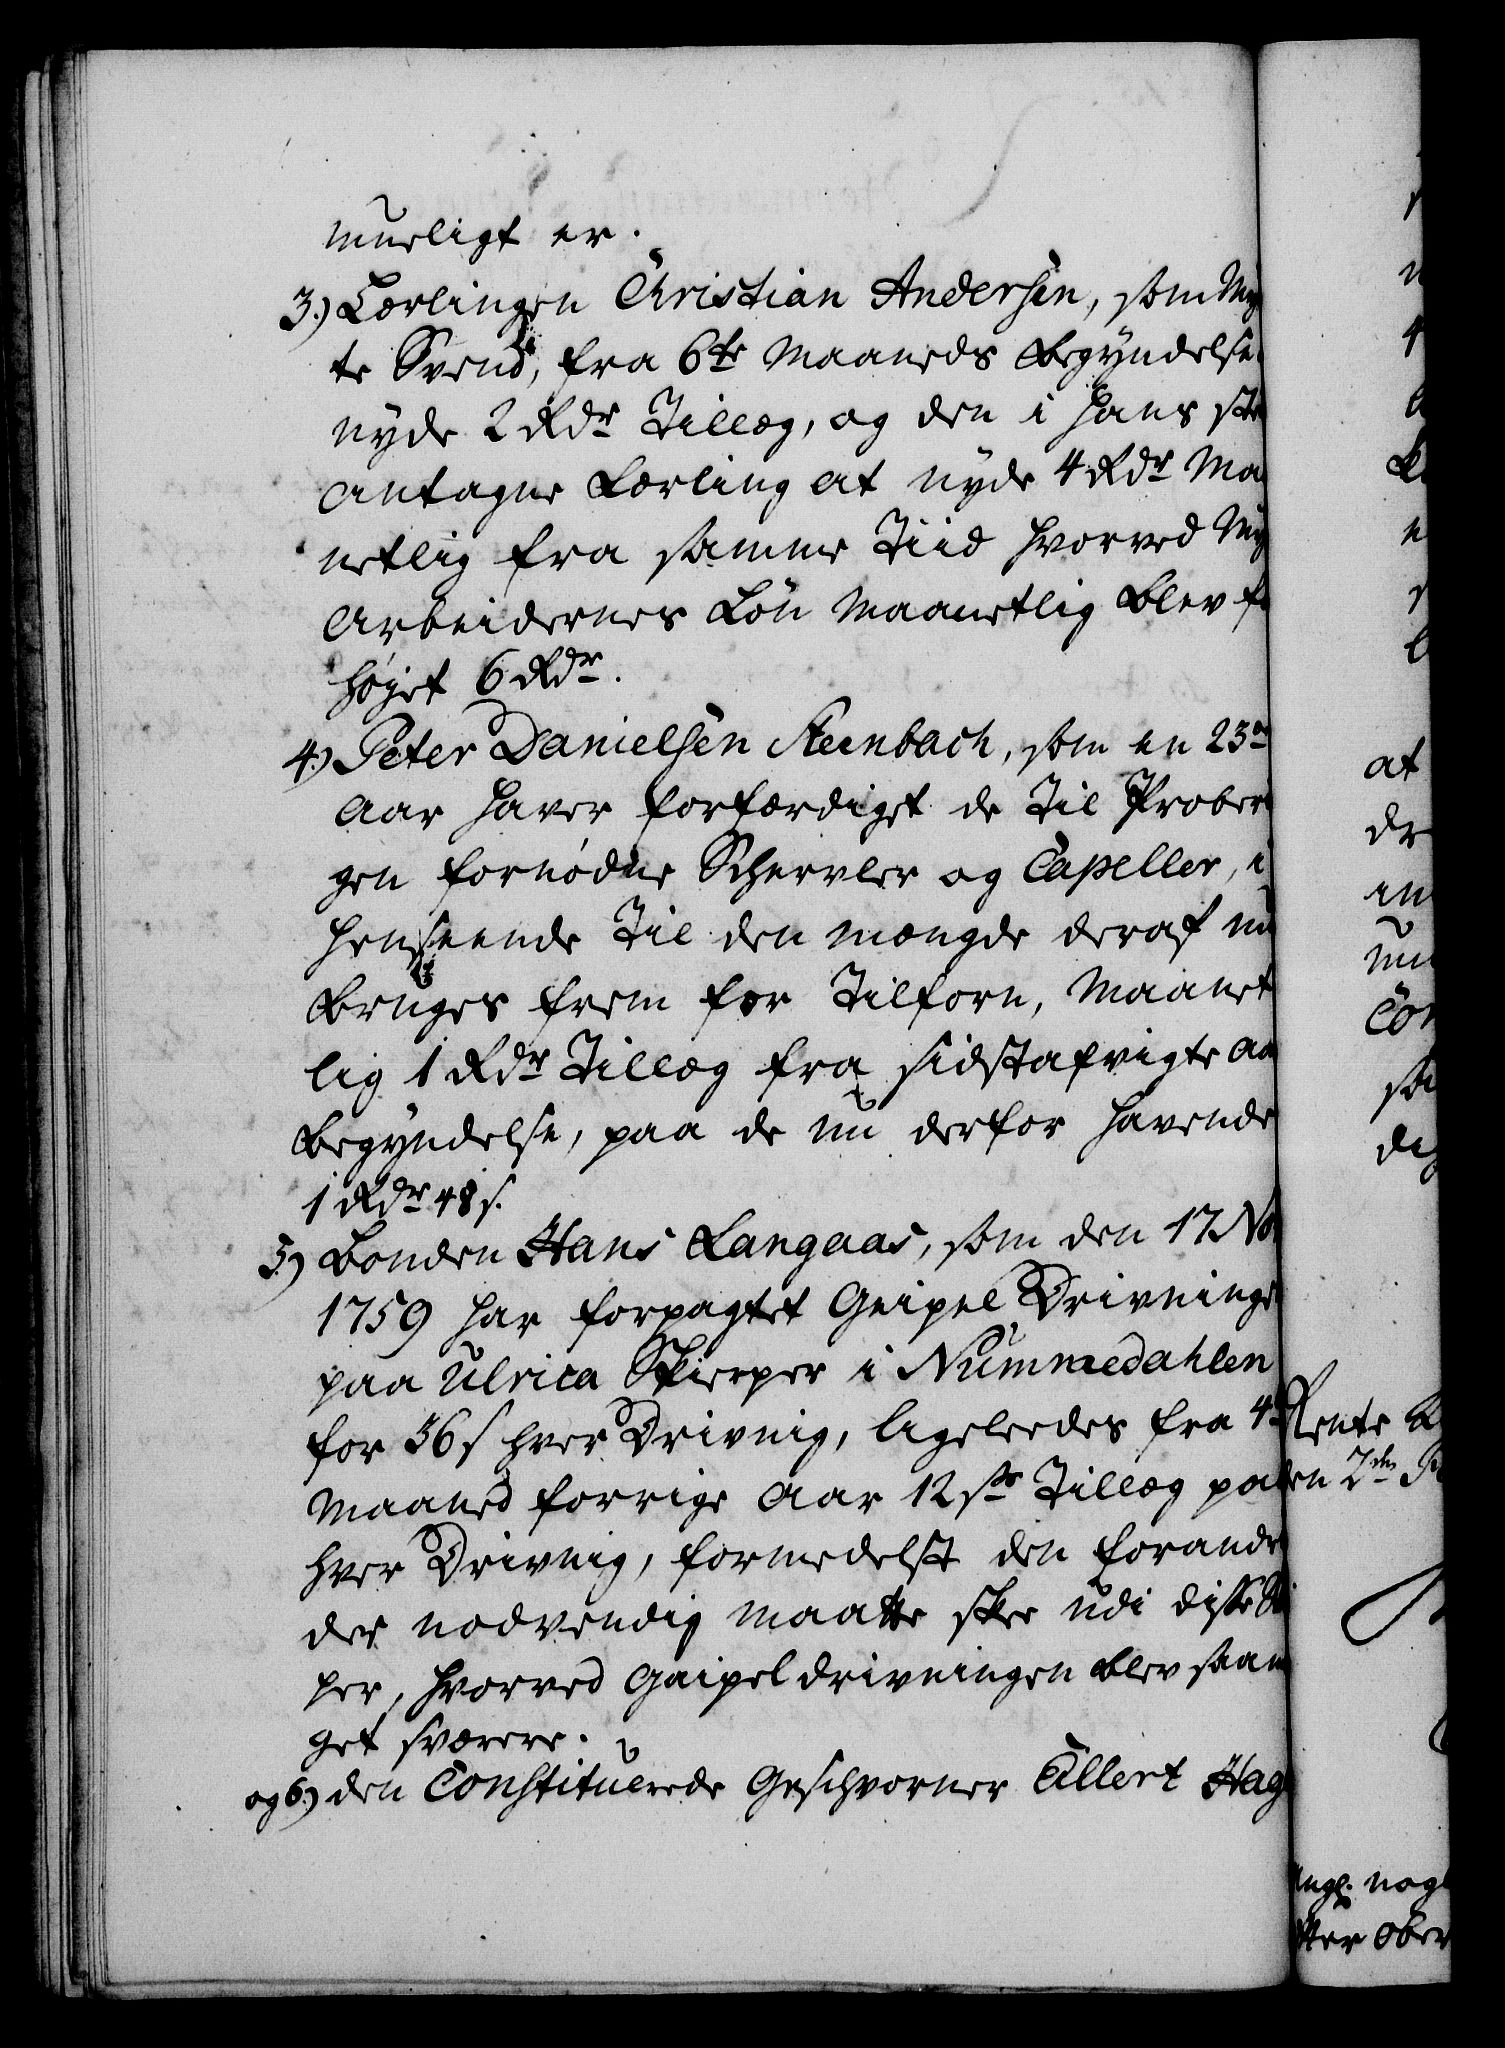 mueligt er.
3.) Lærlingen Christian Andersen, som
te Svend, fra 6te Maaneds Begyndelse
nyde 2 Rdr Tillæg, og den i hans
antagne Lærling at nyde 4 Rdr Maa
netlig fra samme Tiid hvorved
Arbeidernes Løn Maanetlig blev
høyet 6 Rdr.
4.) Peter Danielsen Steenbach, som en 23
Aar haver forfærdiget de til Prober
gen fornødne Schervler og Capeller, i
henseende til den mængde deraf nu
bruges frem for tilforn, Maanet
lig 1 Rdr Tillæg fra sidstafvigte Aa
Begyndelse, paa de nu derfor havende
1 Rdr 48 s.
5.) Bonden Hans Langaas, som den 17 No
1759 har forpagtet Geipel Drivninge
paa Ulrica Skierper i Nummedahlen
for 36 s hver Drivnig, ligeleedes fra 4
Maaned forrige Aar 12 s Tillæg paa
hver Drivnig, formedelst den forande
der nødvendig maatte skee udi disse
per, hvorved Gaipel drivningen blev saa
get sværere.
og 6.) den Constituerede Geschvorner Ellert Hag